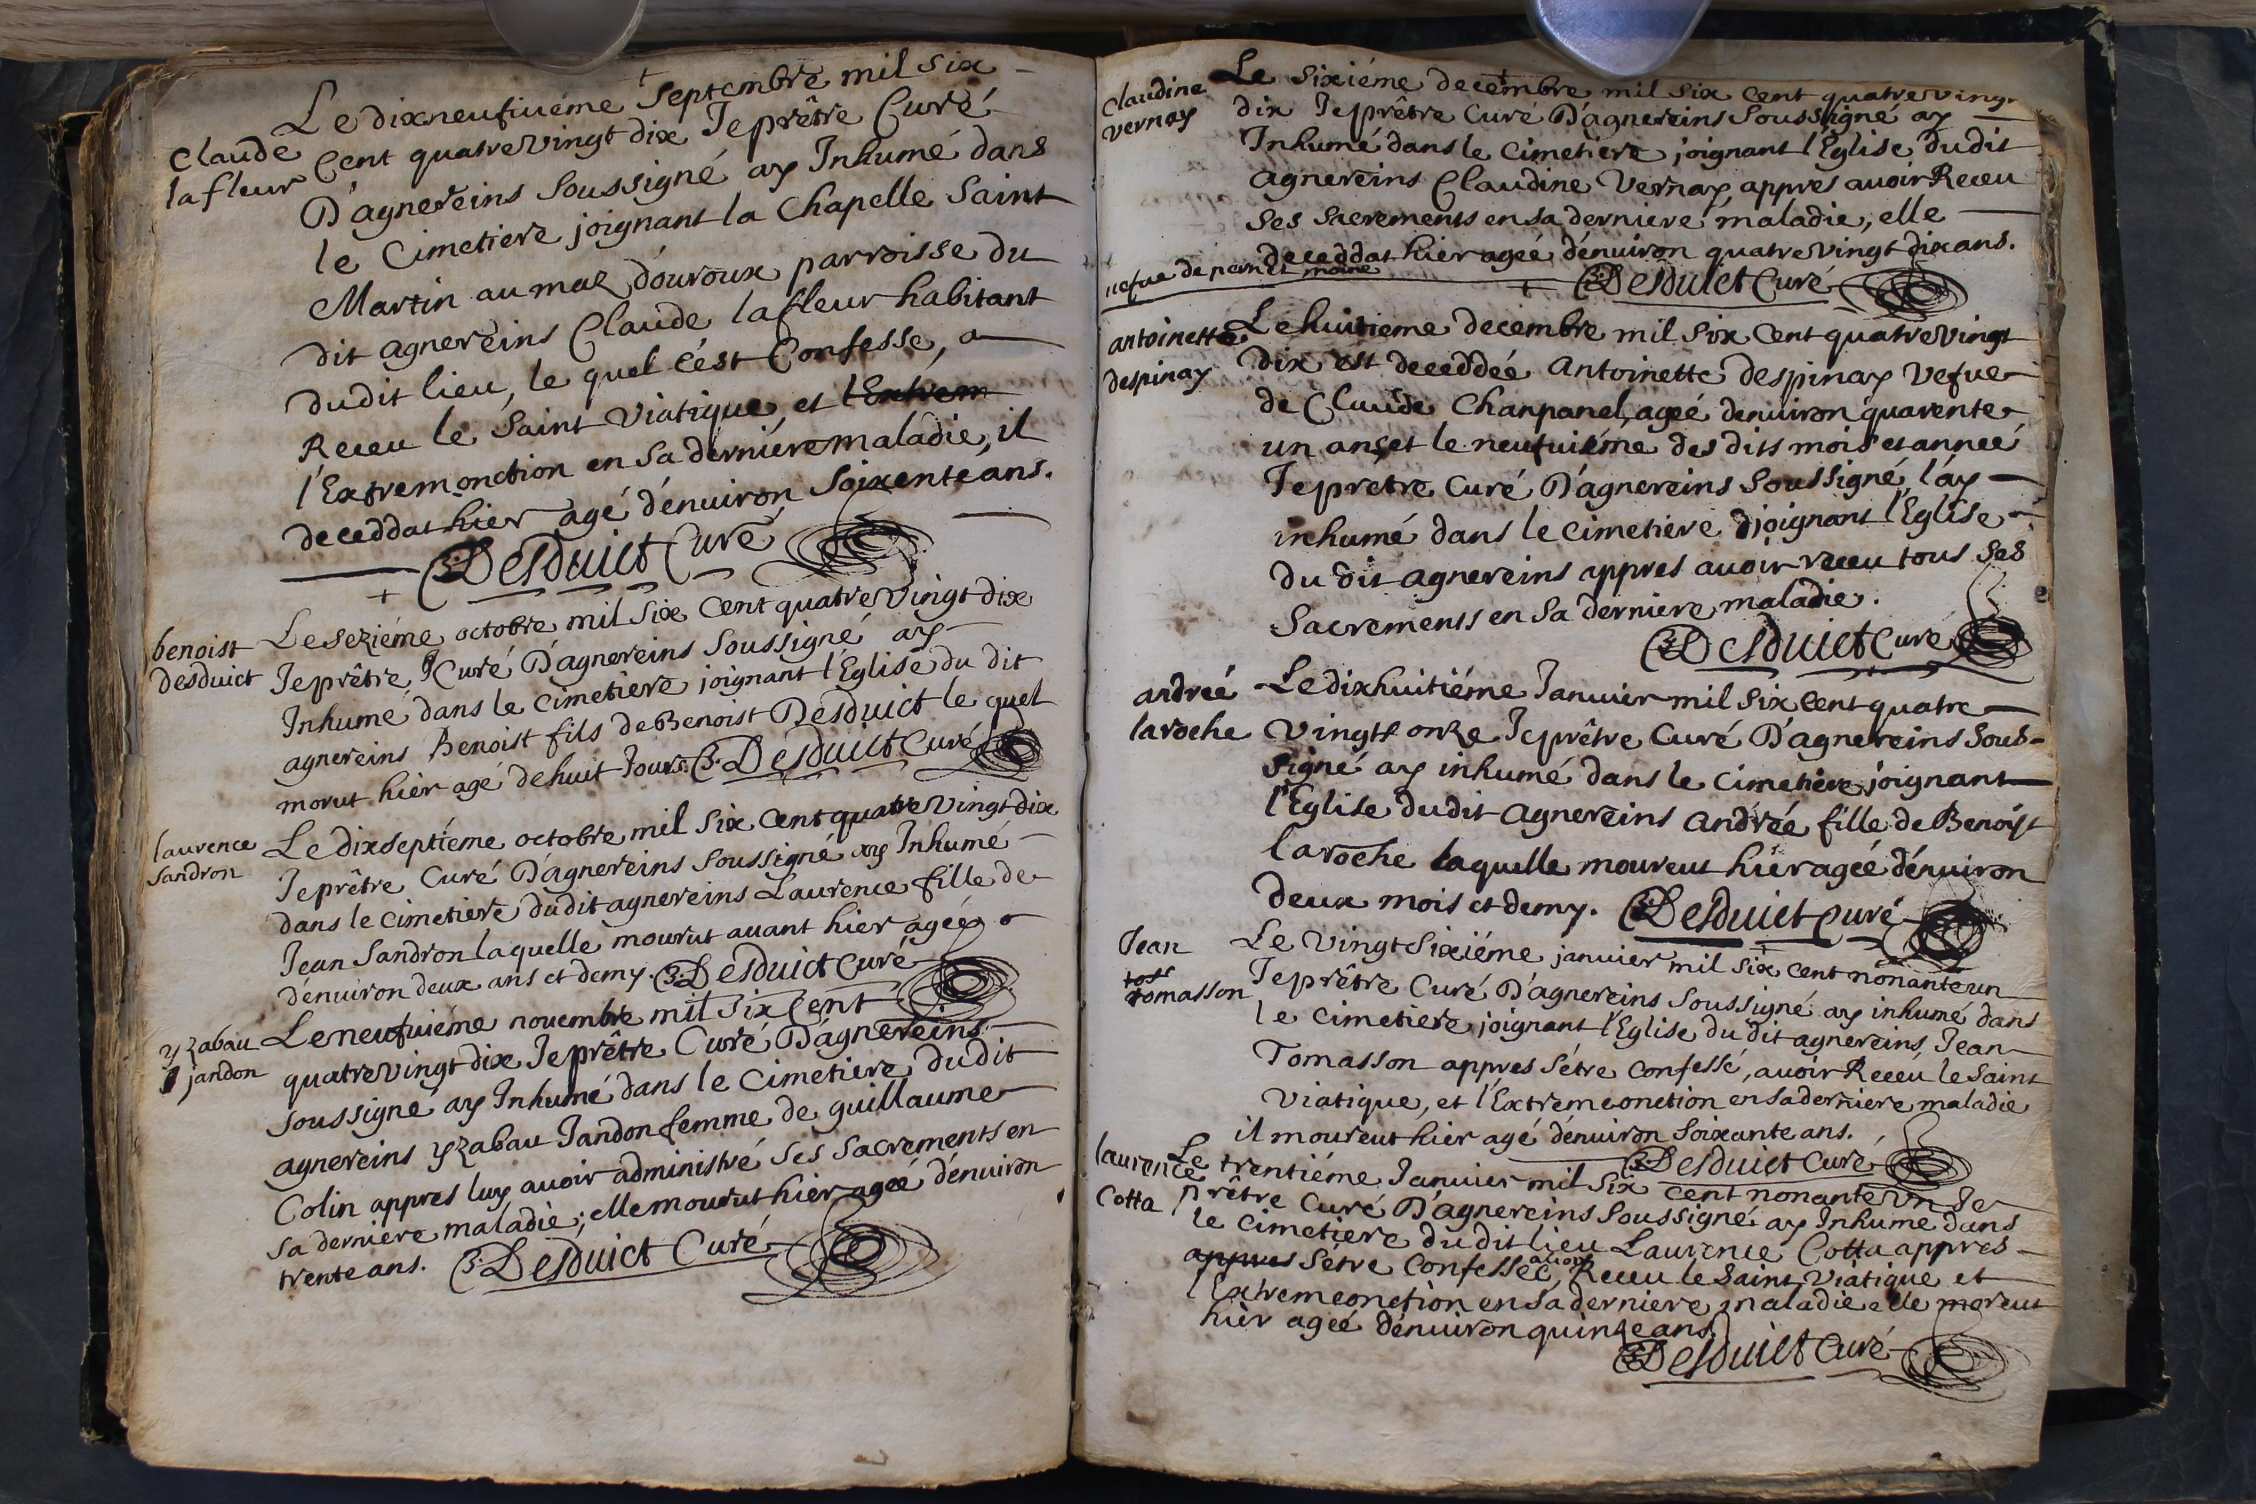 Le dixneufiueme septembre mil six
Claude
la fleur
Cent quatrevingt dix Je prêtre Curé
D'agnereins soussigné ay Inhumé dans
le Cimetiere joignant la Chapelle saint
Martin au mas d'ouroux parroisse du
dit agnereins Claude lafleur habitant
dudit lieu, le quel c'est Confesse, a
Receu le saint viatique, et l'Extrem
l'Extremonction en sa derniere maladie, il
deceddat hier agé d'enuiron soixente ans.
Desduict Curé
benoist
desduict
Le seziéme octobre mil six cent quatrevingt dix
Je prêtre Curé D'agnereins soussigné ay
Inhumé dans le cimetiere joignant l'Eglise du dit
agnereins Benoist fils de Benoist Desduict le quel
morut hier agé de huit Jours. Desduict Curé
laurence
sandron
Le dixseptiéme octobre mil six cent quatrevingt dix
Je prêtre Curé D'agnereins soussigné ay Inhumé
dans le cimetiere dudit agnereins Laurence fille de
Jean Sandron laquelle mourut auant hier agée
d'enuiron deux ans et demy. Desduict Curé
yzabau
jandon
Le neufuiéme nouembre mil six Cent
quatrevingt dix Je prêtre Curé D'agnereins
soussigné ay Inhumé dans le Cimetiere dudit
agnereins yzabau Jandon femme de guillaume
Colin appres luy auoir administré ses sacrements en
sa derniere maladie; elle mourut hier agée d'enuiron
trente ans. Desduict Curé
Claudine
vernay
Le sixiéme decembre mil six cent quatrevingt
dix Je prêtre Curé D'agnereins soussigné ay
Inhumé dans le Cimetiere joignant l'Eglise dudit
agnereins Claudine Vernay, appres auoir Receu
ses sacrements en sa derniere maladie, elle
deceddat hier agée d'enuiron quatrevingt dix ans.
uefue de pernet moine
Desduict Curé
antoinette
despinay
Le huitieme decembre mil six Cent quatrevingt
dix est deceddée antoinette despinay Vefue
de Claude Chanpanel, agée denuiron quarente
un ans, et le neufuiéme des dits mois et année
Je pretre Curé D'agnereins soussigné l'ay
inhumé dans le cimetiere joignant l'Eglise
du dit agnereins appres auoir receu tous ses
sacrements en sa derniere maladie.
Desduict Curé
andreé
laroche
Le dixhuitiéme Januier mil six cent quatre
vingt onze Je prêtre Curé D'agnereins sous-
signé ay inhumé dans le cimetiere joignant
l'Eglise dudit agnereins andrée fille de Benoist
laroche laquelle moureut hier agée d'enuiron
deux mois et demy. Desduict Curé
Jean
tomasson
Le vingt sixiéme januier mil six cent nonante un
Je prêtre Curé D'agnereins soussigné ay inhumé dans
le cimetiere joignant l'Eglise du dit agnereins, Jean
Tomasson appres s'étre confessé, auoir Receu le saint
viatique, et l'Extremeonction en sa derniere maladie
il moureut hier agé d'enuiron soixante ans.
Desduict Curé
laurence
Cotta
Le trentiéme Januier mil six cent nonante un Je
prêtre Curé D'agnereins soussigné ay Inhume dans
le cimetiere du dit lieu Laurence Cotta appres
appres s'étre Confessée, auoir Receu le saint viatique et
l'Extremeonction en sa derniere maladie elle moreut
hier agée d'enuiron quinze ans.
Desduict Curé